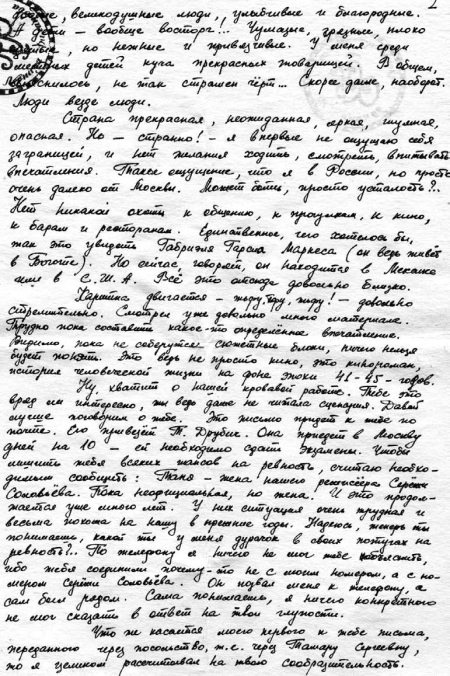 2
добрые, великодушные люди, улыбчивые и благородные.
А дети – вообще восторг!.. Чумазые, грязные, плохо
одетые, но нежные и приветливые. У меня среди
местных детей куча прекрасных товарищей. В общем,
выяснилось, не так страшен чёрт... Скорее даже, наоборот.
Люди везде люди.
Страна прекрасная, неожиданная, яркая, шумная,
опасная. Но – странно! – я впервые не ощущаю себя
заграницей, и нет желания ходить, смотреть, впитывать
впечатления. Такое ощущение, что я в России, но просто
очень далеко от Москвы. Может быть, просто усталость?..
Нет никакой охоты к общению, к прогулкам, к кино,
к барам и ресторанам. Единственное, чего хотелось бы,
так это увидеть Габриэля Гарсиа Маркеса (он ведь живёт
в Боготе). Но сейчас, говорят, он находится в Мексике
или в С.Ш.А. Всё это отсюда довольно близко.
Картина двигается – тьфу, тьфу, тьфу! – довольно
стремительно. Смотрел уже довольно много материала.
Трудно пока составить какое-то определённое впечатление.
Видимо, пока не соберутся сюжетные блоки, ничего нельзя
будет понять. Это ведь не просто кино, это кинороман,
история человеческой жизни на фоне эпохи 41-45-годов.
Ну, хватит о нашей кровавой работе. Тебе это
вряд ли интересно, ты ведь даже не читала сценария. Давай
лучше поговорим о тебе. Это письмо придёт к тебе по
почте. Его привезёт Т. Друбич. Она приедет в Москву
дней на 10 – ей необходимо сдать экзамены. Чтобы
лишить тебя всяких шансов на ревность, считаю необхо-
димым сообщить: Таня – жена нашего режиссёра Серёжи
Соловьёва. Пока неофициальная, но жена. И это продол-
жается уже много лет. У них ситуация очень трудная и
весьма похожа на нашу в прежние годы. Надеюсь, теперь ты
понимаешь, какой ты у меня дурачок в своих потугах на
ревность?.. По телефону я ничего не мог тебе объяснить,
ибо тебя соединили почему-то не с моим номером, а с но-
мером Серёжи Соловьёва. Он позвал меня к телефону, а
сам был рядом. Сама понимаешь, я ничего конкретного
не мог сказать в ответ на твои глупости.
Что же касается моего первого к тебе письма,
переданного через посольство, т.е. через Тамару Сергеевну,
то я целиком рассчитывал на твою сообразительность.